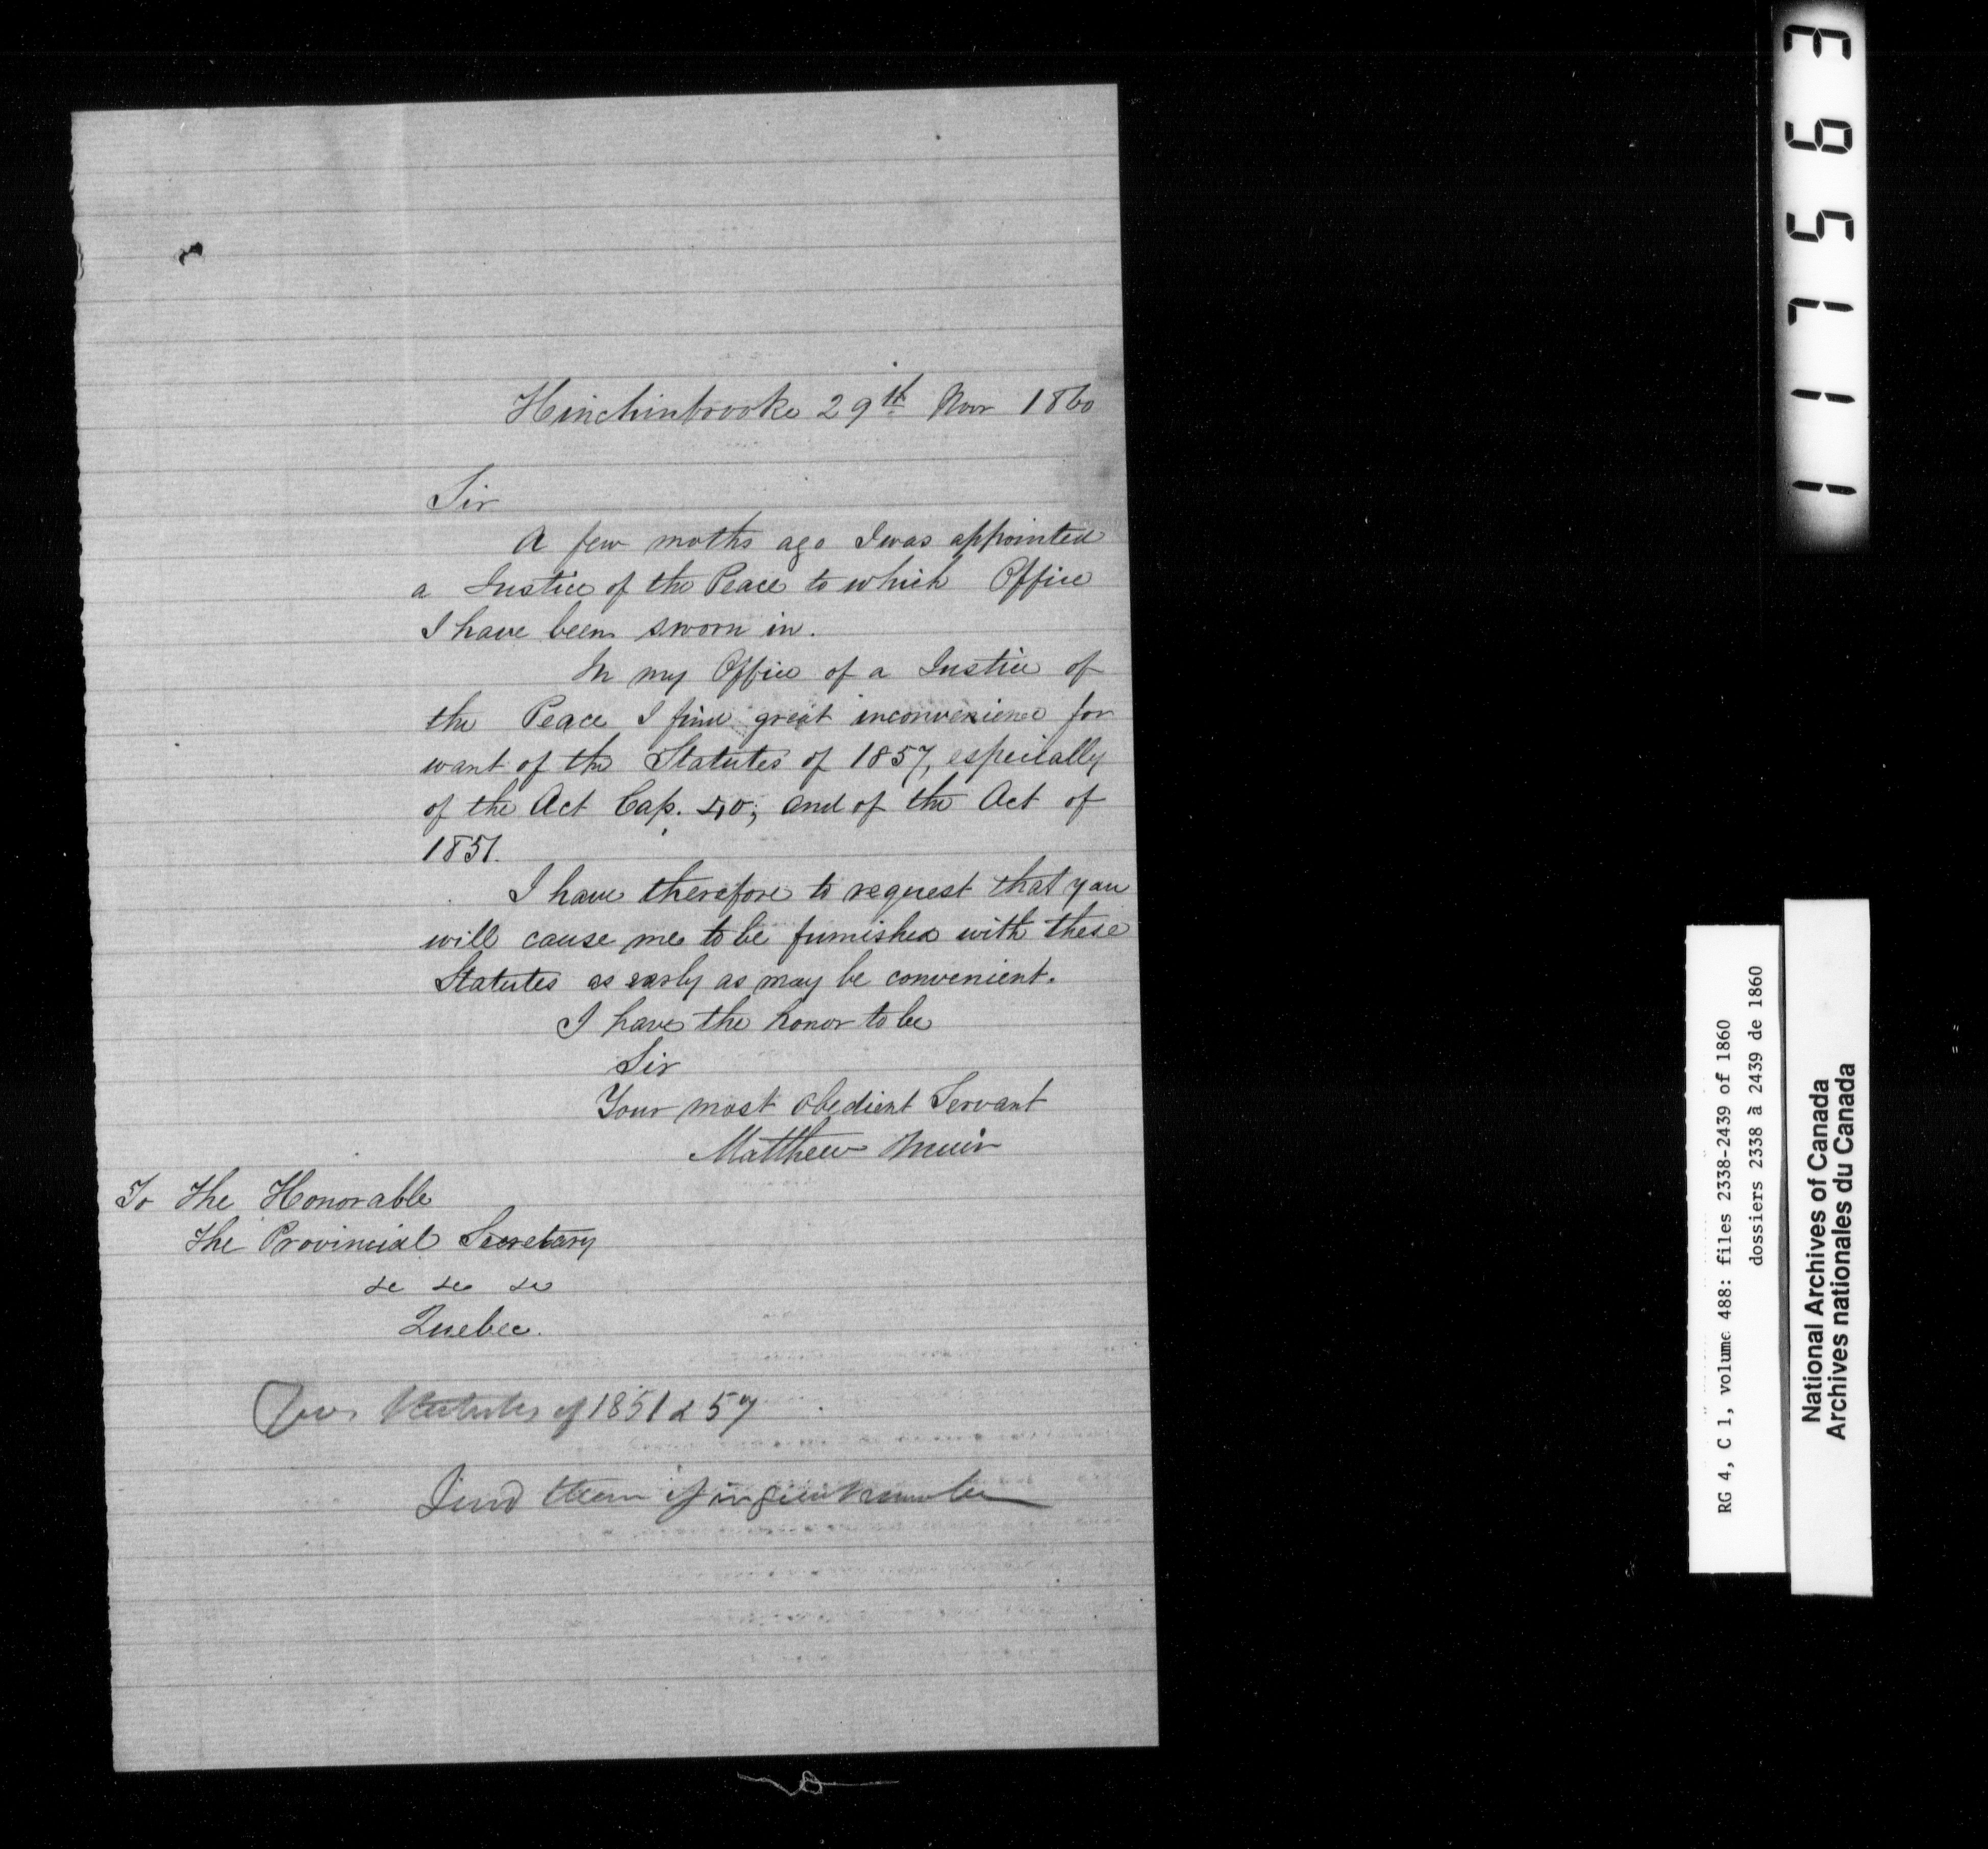 Hinchinbrooke 29th Novr 1860
Sir
A few moths ago I was appointed
a Justice of the Peace to which Office
I have been sworn in.
In my Office of a Justice of
the Peace I find great inconvenience for
want of the Statutes of 1857, especially
of the Act Cap. 40; and of the Act of
1851.
I have therefore to request that you
will cause me to be furnished with these
Statutes as early as may be convenient.
I have the honor to be
Sir
Your most obedient Servant
Matthew Muir
To The Honorable
The Provincial Secretary
&c &c &c
Quebec.
Statutes of 1851 & 57
Send them if in
117563
RG 4, C 1, volume 488: files 2338-2439 of 1860
dossiers 2338 à 2439 de 1860
National Archives of Canada
Archives nationales du Canada